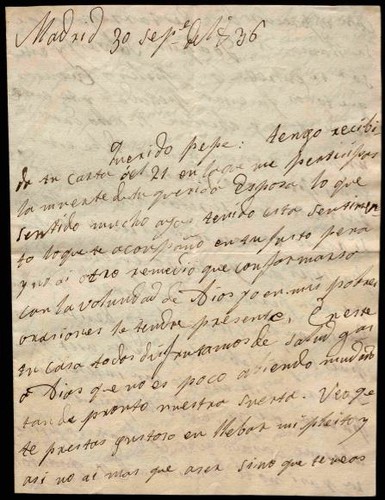 Madrid 30 sepe. del 836
Querido pepe: tengo recibi
do tu carta del 21 en la que me partisipas
la muerte de tu querida Esposa lo que
sentido mucho aças tenido esta sentimien
to lo que te aconpaño en tu justo pena
y no ai otro remedio que conformarse
con la voluntad de Dios yo en mis pobres
orasiones le tendre presente, En esta
tu casa todos disfrutamos de salud gas
a Dios que no es poco abiendo mudado
tan de pronto nuestra suerta. Veo que
te prestas gustoso en llebar mi pleito y
asi no ai mas que aser sino que te veas